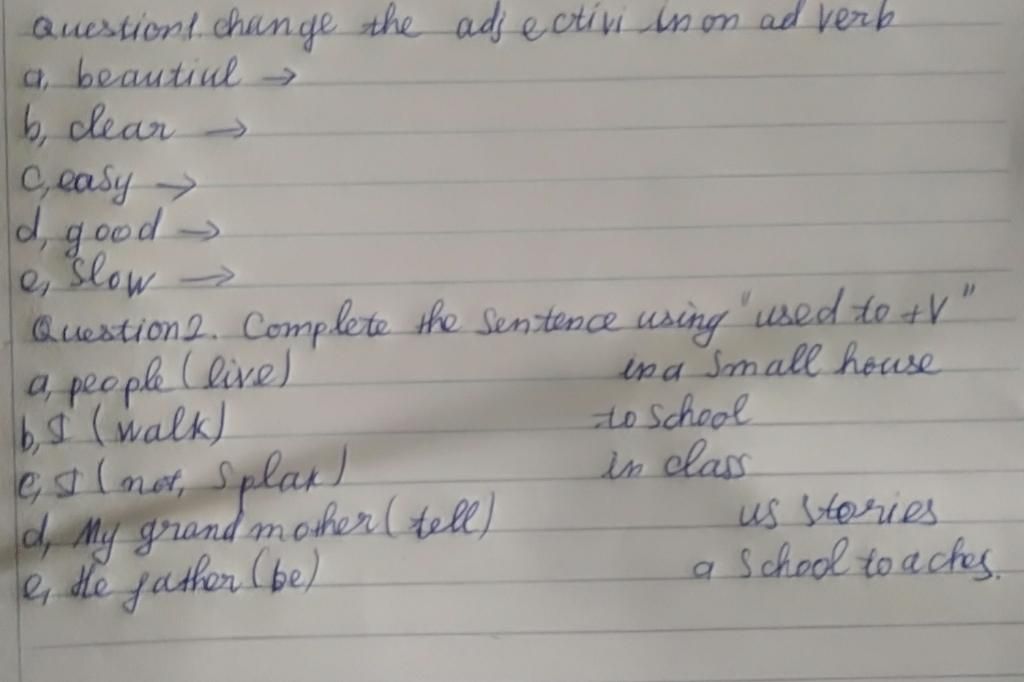 Question1. change the adjectivi in on ad verb
a, beautiul →
b, clear →
c, easy →
d, good →
e, Slow →
Question2. Complete the Sentence using "used to +V"
a, people (live) in a small house
b, I (walk) to school
c, I (not, Splak) in class
d, My grand mother (tell) us stories
e, He father (be) a School to aches.